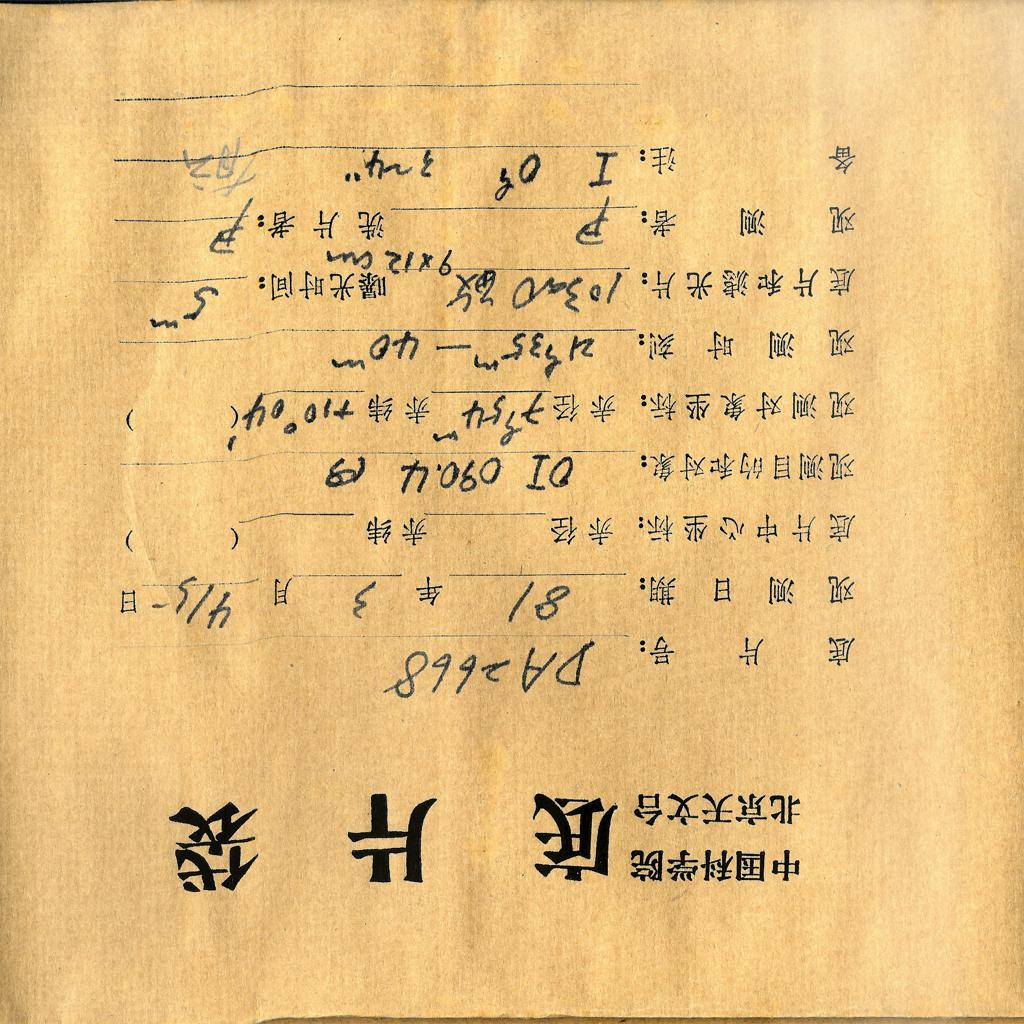 中国科学院
北京天文台
底 片 袋
底 片 号: DA2668
观 测 日 期: 81 年 3 月 4/5 日
底片中心坐标: 赤经 赤纬 ( )
观测目的和对象: OI 090.4
观测对象坐标: 赤经 7h54m 赤纬 +10°04′ ( )
观 测 时 刻: 21h35m — 40m
底片和滤光片: 103aO 9×12cm 曝光时间: 5m
观 测 者: 尹 洗片者: 尹
备 注: I 0h 3~4"